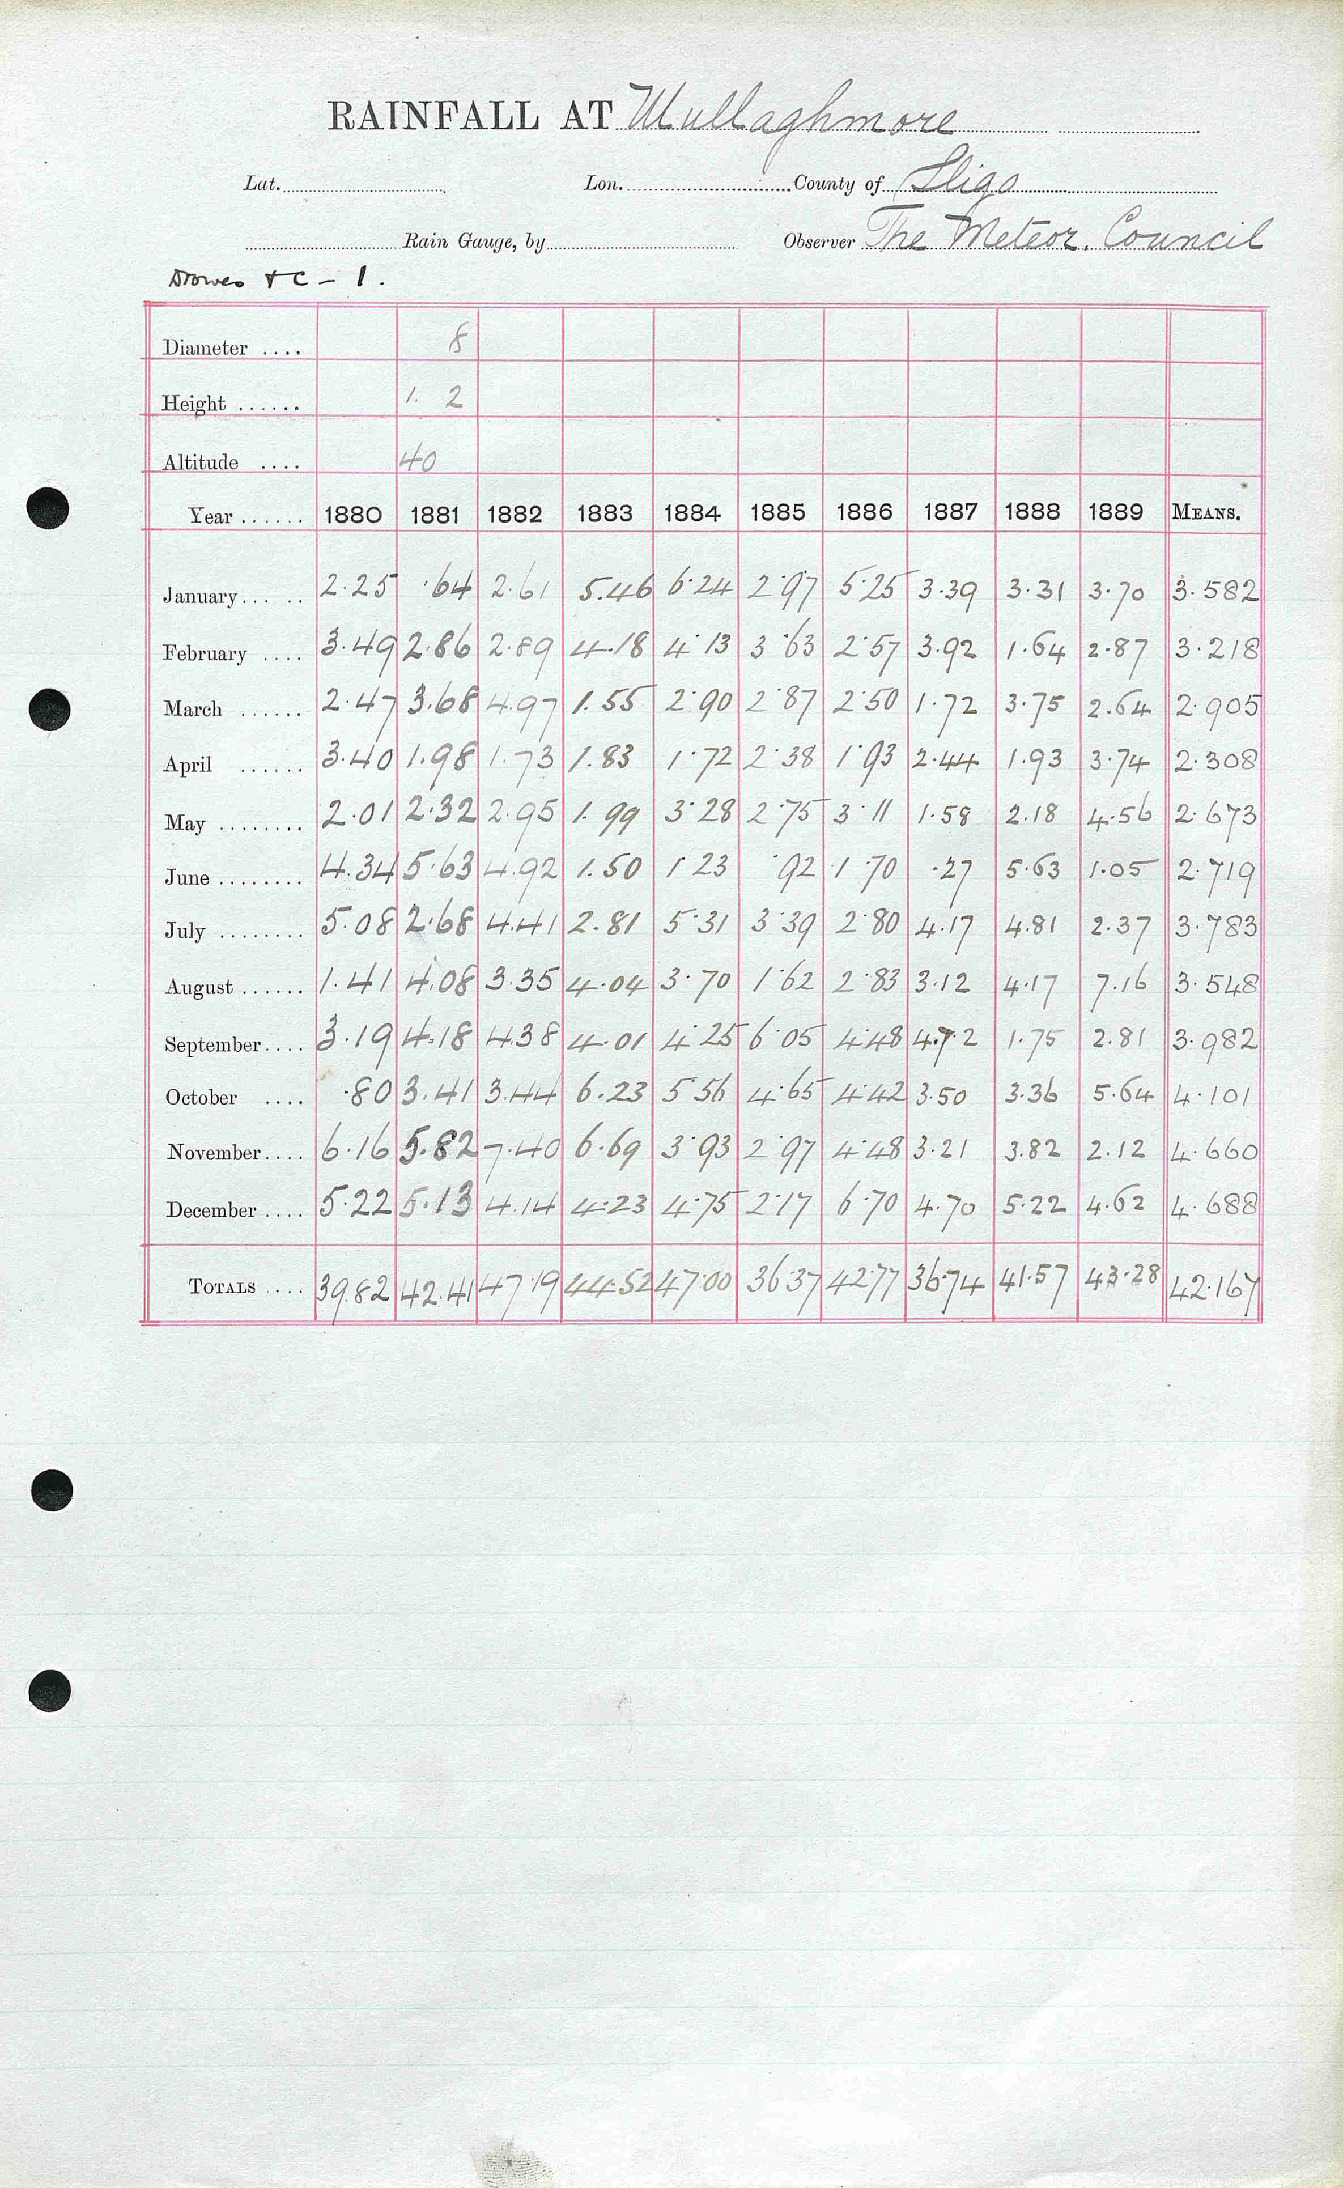 RAINFALL AT Mullaghmore
Lat. Lon. County of Sligo
Rain Gauge, by Observer The Meteor. Council
Drowes & C - 1.
Diameter .... 8
Height ...... 1. 2
Altitude .... 40
Year ...... 1880 1881 1882 1883 1884 1885 1886 1887 1888 1889 MEANS.
January... .. 2.25 .64 2.61 5.46 6.24 2.97 5.25 3.39 3.31 3.70 3.582
February .... 3.49 2.86 2.89 4.18 4.13 3.63 2.57 3.92 1.64 2.87 3.218
March ...... 2.47 3.68 4.97 1.55 2.90 2.87 2.50 1.72 3.75 2.64 2.905
April ...... 3.40 1.98 1.73 1.83 1.72 2.38 1.93 2.44 1.93 3.74 2.308
May ........ 2.01 2.32 2.95 1.99 3.28 2.75 3.11 1.58 2.18 4.56 2.673
June ........ 4.34 5.63 4.92 1.50 1.23 .92 1.70 .27 5.63 1.05 2.719
July ........ 5.08 2.68 4.41 2.81 5.31 3.39 2.80 4.17 4.81 2.37 3.783
August ...... 1.41 4.08 3.35 4.04 3.70 1.62 2.83 3.12 4.17 7.16 3.548
September.... 3.19 4.18 4.38 4.01 4.25 6.05 4.48 4.72 1.75 2.81 3.982
October .... .80 3.41 3.44 6.23 5.56 4.65 4.42 3.50 3.36 5.64 4.101
November.... 6.16 5.82 7.40 6.69 3.93 2.97 4.48 3.21 3.82 2.12 4.660
December .... 5.22 5.13 4.14 4.23 4.75 2.17 6.70 4.70 5.22 4.62 4.688
TOTALS .... 39.82 42.41 47.19 44.52 47.00 36.37 42.77 36.74 41.57 43.28 42.167